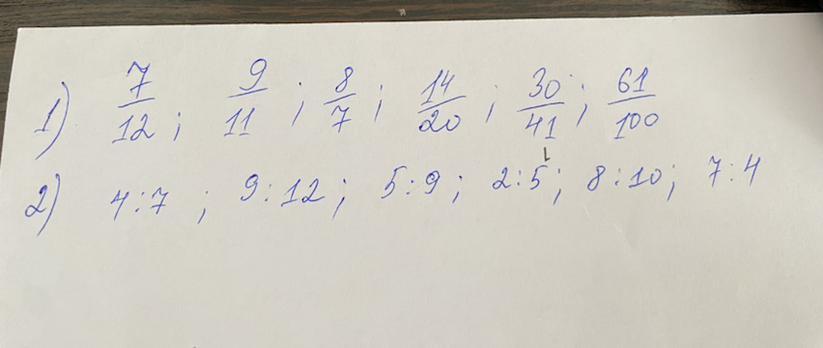 1) 7/12; 9/11; 8/7; 14/20; 30/41; 61/100
2) 4:7; 9:12; 5:9; 2:5; 8:10; 7:4